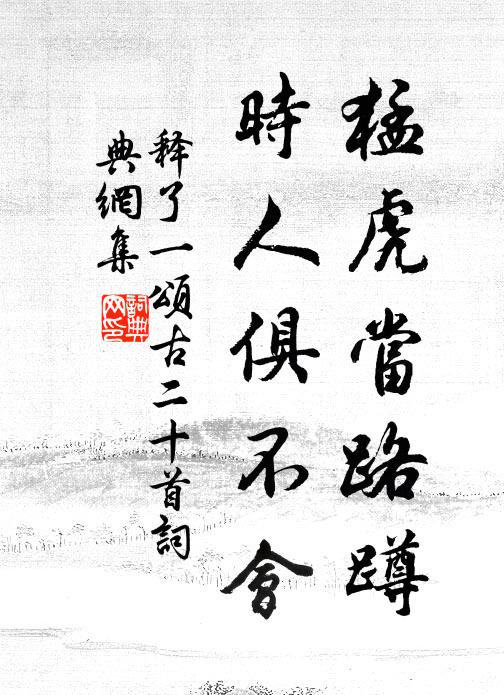 猛虎當路蹲
時人俱不會
释了一頌古二十首詞
典網集
詞典網印